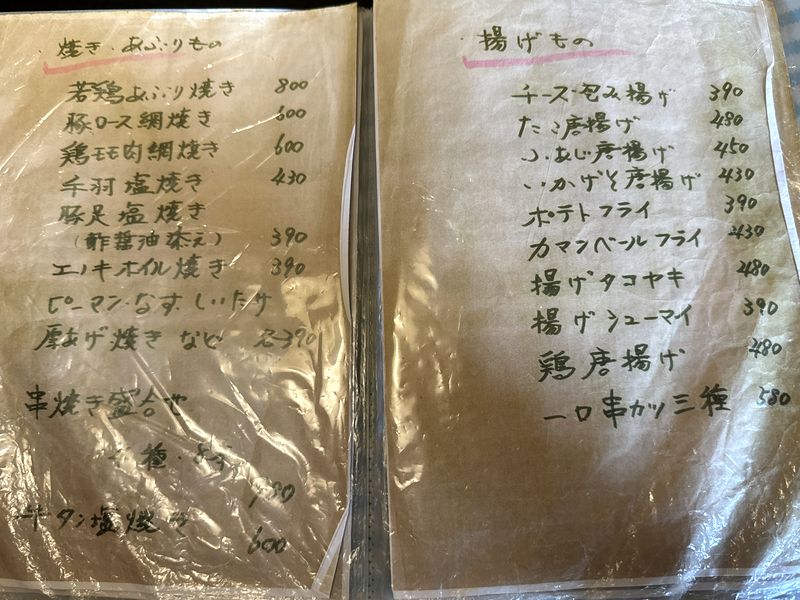 焼き・あぶりもの
若鶏あぶり焼き 800
豚ロース網焼き 600
鶏モモ肉網焼き 600
手羽塩焼き 430
豚足塩焼き
(酢醤油添え) 390
エノキホイル焼き 390
ピーマン・なす・しいたけ
厚あげ焼きなど 各390
串焼き盛合せ
種・
牛タン塩焼き
600
揚げもの
チーズ包み揚げ 390
たこ唐揚げ 480
小あじ唐揚げ 450
いかげそ唐揚げ 430
ポテトフライ 390
カマンベールフライ 430
揚げタコヤキ 480
揚げシューマイ 390
鶏唐揚げ 480
一口串カツ三種 580